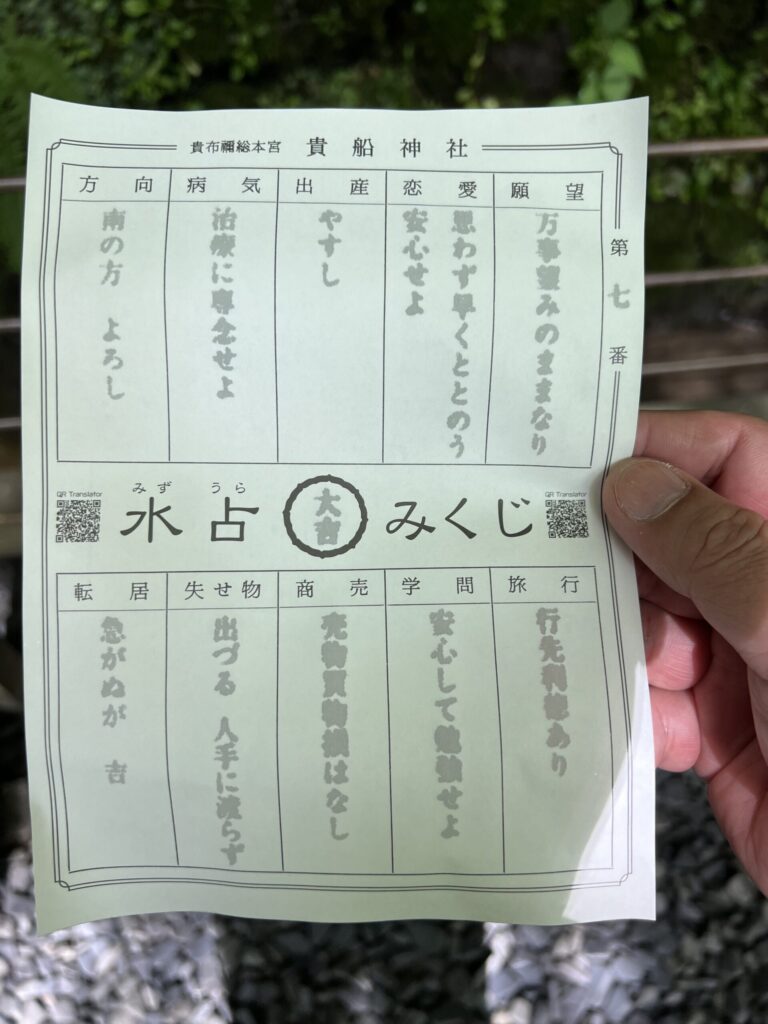 貴布禰総本宮 貴船神社
第七番
願望
万事望みのままなり
恋愛
思わず早くととのう
安心せよ
出産
やすし
病気
治療に専念せよ
方向
南の方 よろし
QR Translator
みず うら
水占 大吉 みくじ
QR Translator
旅行
行先利徳あり
学問
安心して勉強せよ
商売
売物買物損はなし
失せ物
出づる 人手に渡らず
転居
急がぬが 吉